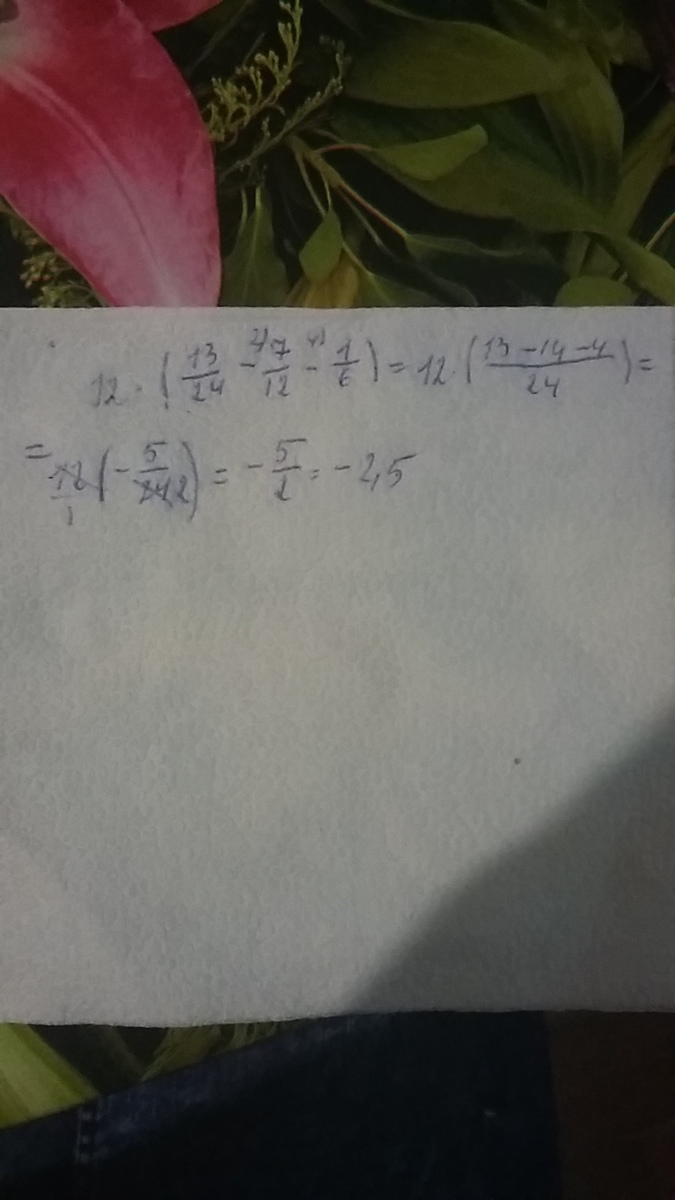 12 · (13/24 - 2) 7/12 - 4) 1/6) = 12 · (13 - 14 - 4/24) =
= 12/1 (- 5/24 2) = - 5/2 = - 2,5